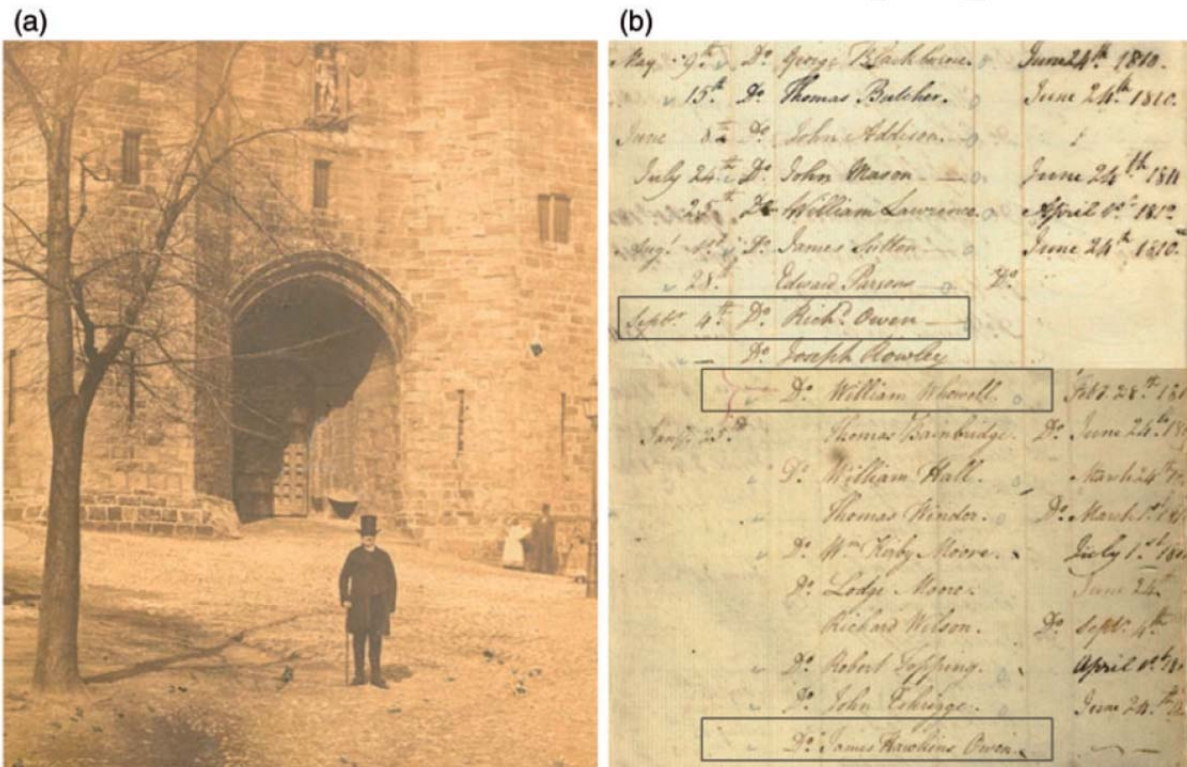 (a)
(b)
May 9th Do George Blackburne. June 24th 1810.
" 15th Do Thomas Butcher. June 24th 1810.
June 8th Do John Addison.
July 24th Do John Mason June 24th 1810
" 25th Do William Lawrence April 1st 1810
Augt 1st Do James Sutton June 24th 1810.
" 28th Edward Parsons Do
Septr 4th Do Richd Owen
Do Joseph Rowley
Do William Whewell. Feby 28th
Jany 25th Thomas Bainbridge. Do June 24th
Do William Hall. March 24th
Thomas Winder. Do March 1st
Do Wm Kirby Moore. July 1st
Do Lodge Moore. June 24th
Richard Wilson. Do Septr 4th
Do Robert Topping. April 1st
Do John June 24th
Do James Hawkins Owen.